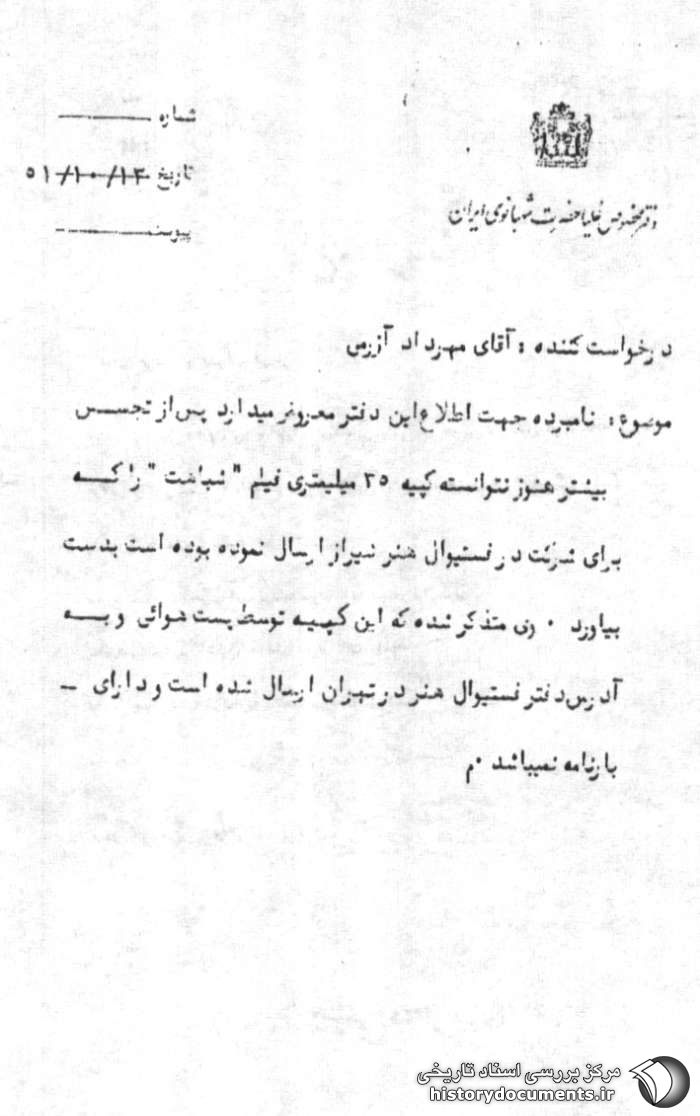 دفتر مخصوص علیاحضرت شهبانوی ایران
شماره
تاریخ ۵۱/۱۰/۱۳
پیوست
درخواست کننده : آقای مهرداد آزرمی
موضوع : نامبرده جهت اطلاع این دفتر معروض میدارد پس از تجسس
بیشتر هنوز نتوانسته کپیه ۳۵ میلیمتری فیلم " شباهت " را که
برای شرکت در فستیوال هنر شیراز ارسال نموده بوده است بدست
بیاورد ۰ وی متذکر شده که این کپیه توسط پست هوائی و به
آدرس دفتر فستیوال هنر در تهران ارسال شده است و دارای –
بارنامه نمیباشد ۰م
مرکز بررسی اسناد تاریخی
historydocuments.ir